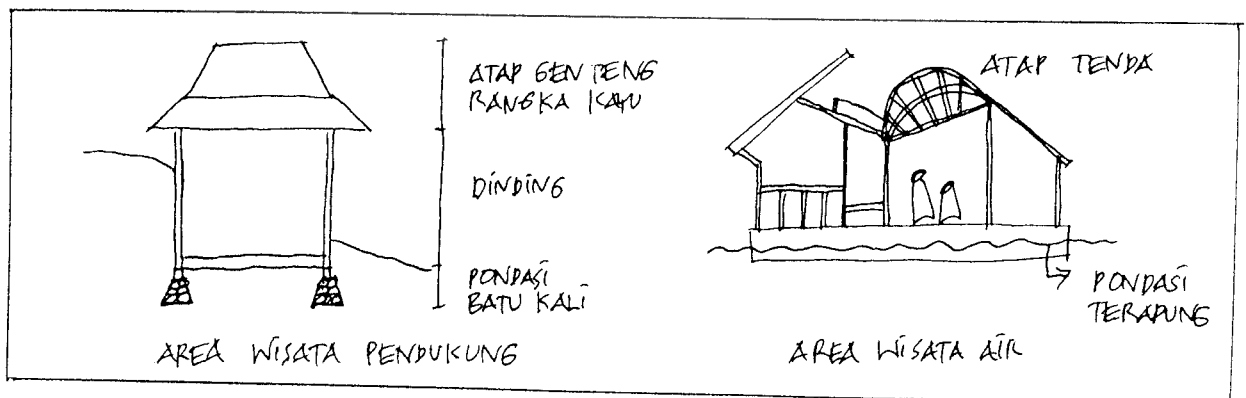 ATAP GENTENG
RANGKA KAYU
DINDING
PONDASI
BATU KALI
AREA WISATA PENDUKUNG
ATAP TENDA
PONDASI
TERAPUNG
AREA WISATA AIR